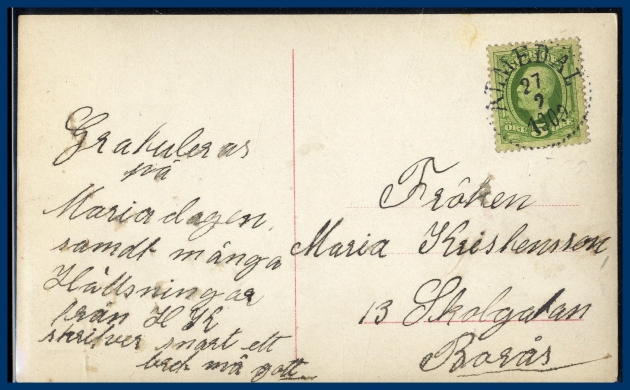 Grakuleras
på
Mariadagen,
samdt många
Hällsningar
från H K
skrifver snart ett
bref må gott
ALMEDAL
27
2
1903
Fröken
Maria Kristensson,
13 Skolgatan
Borås